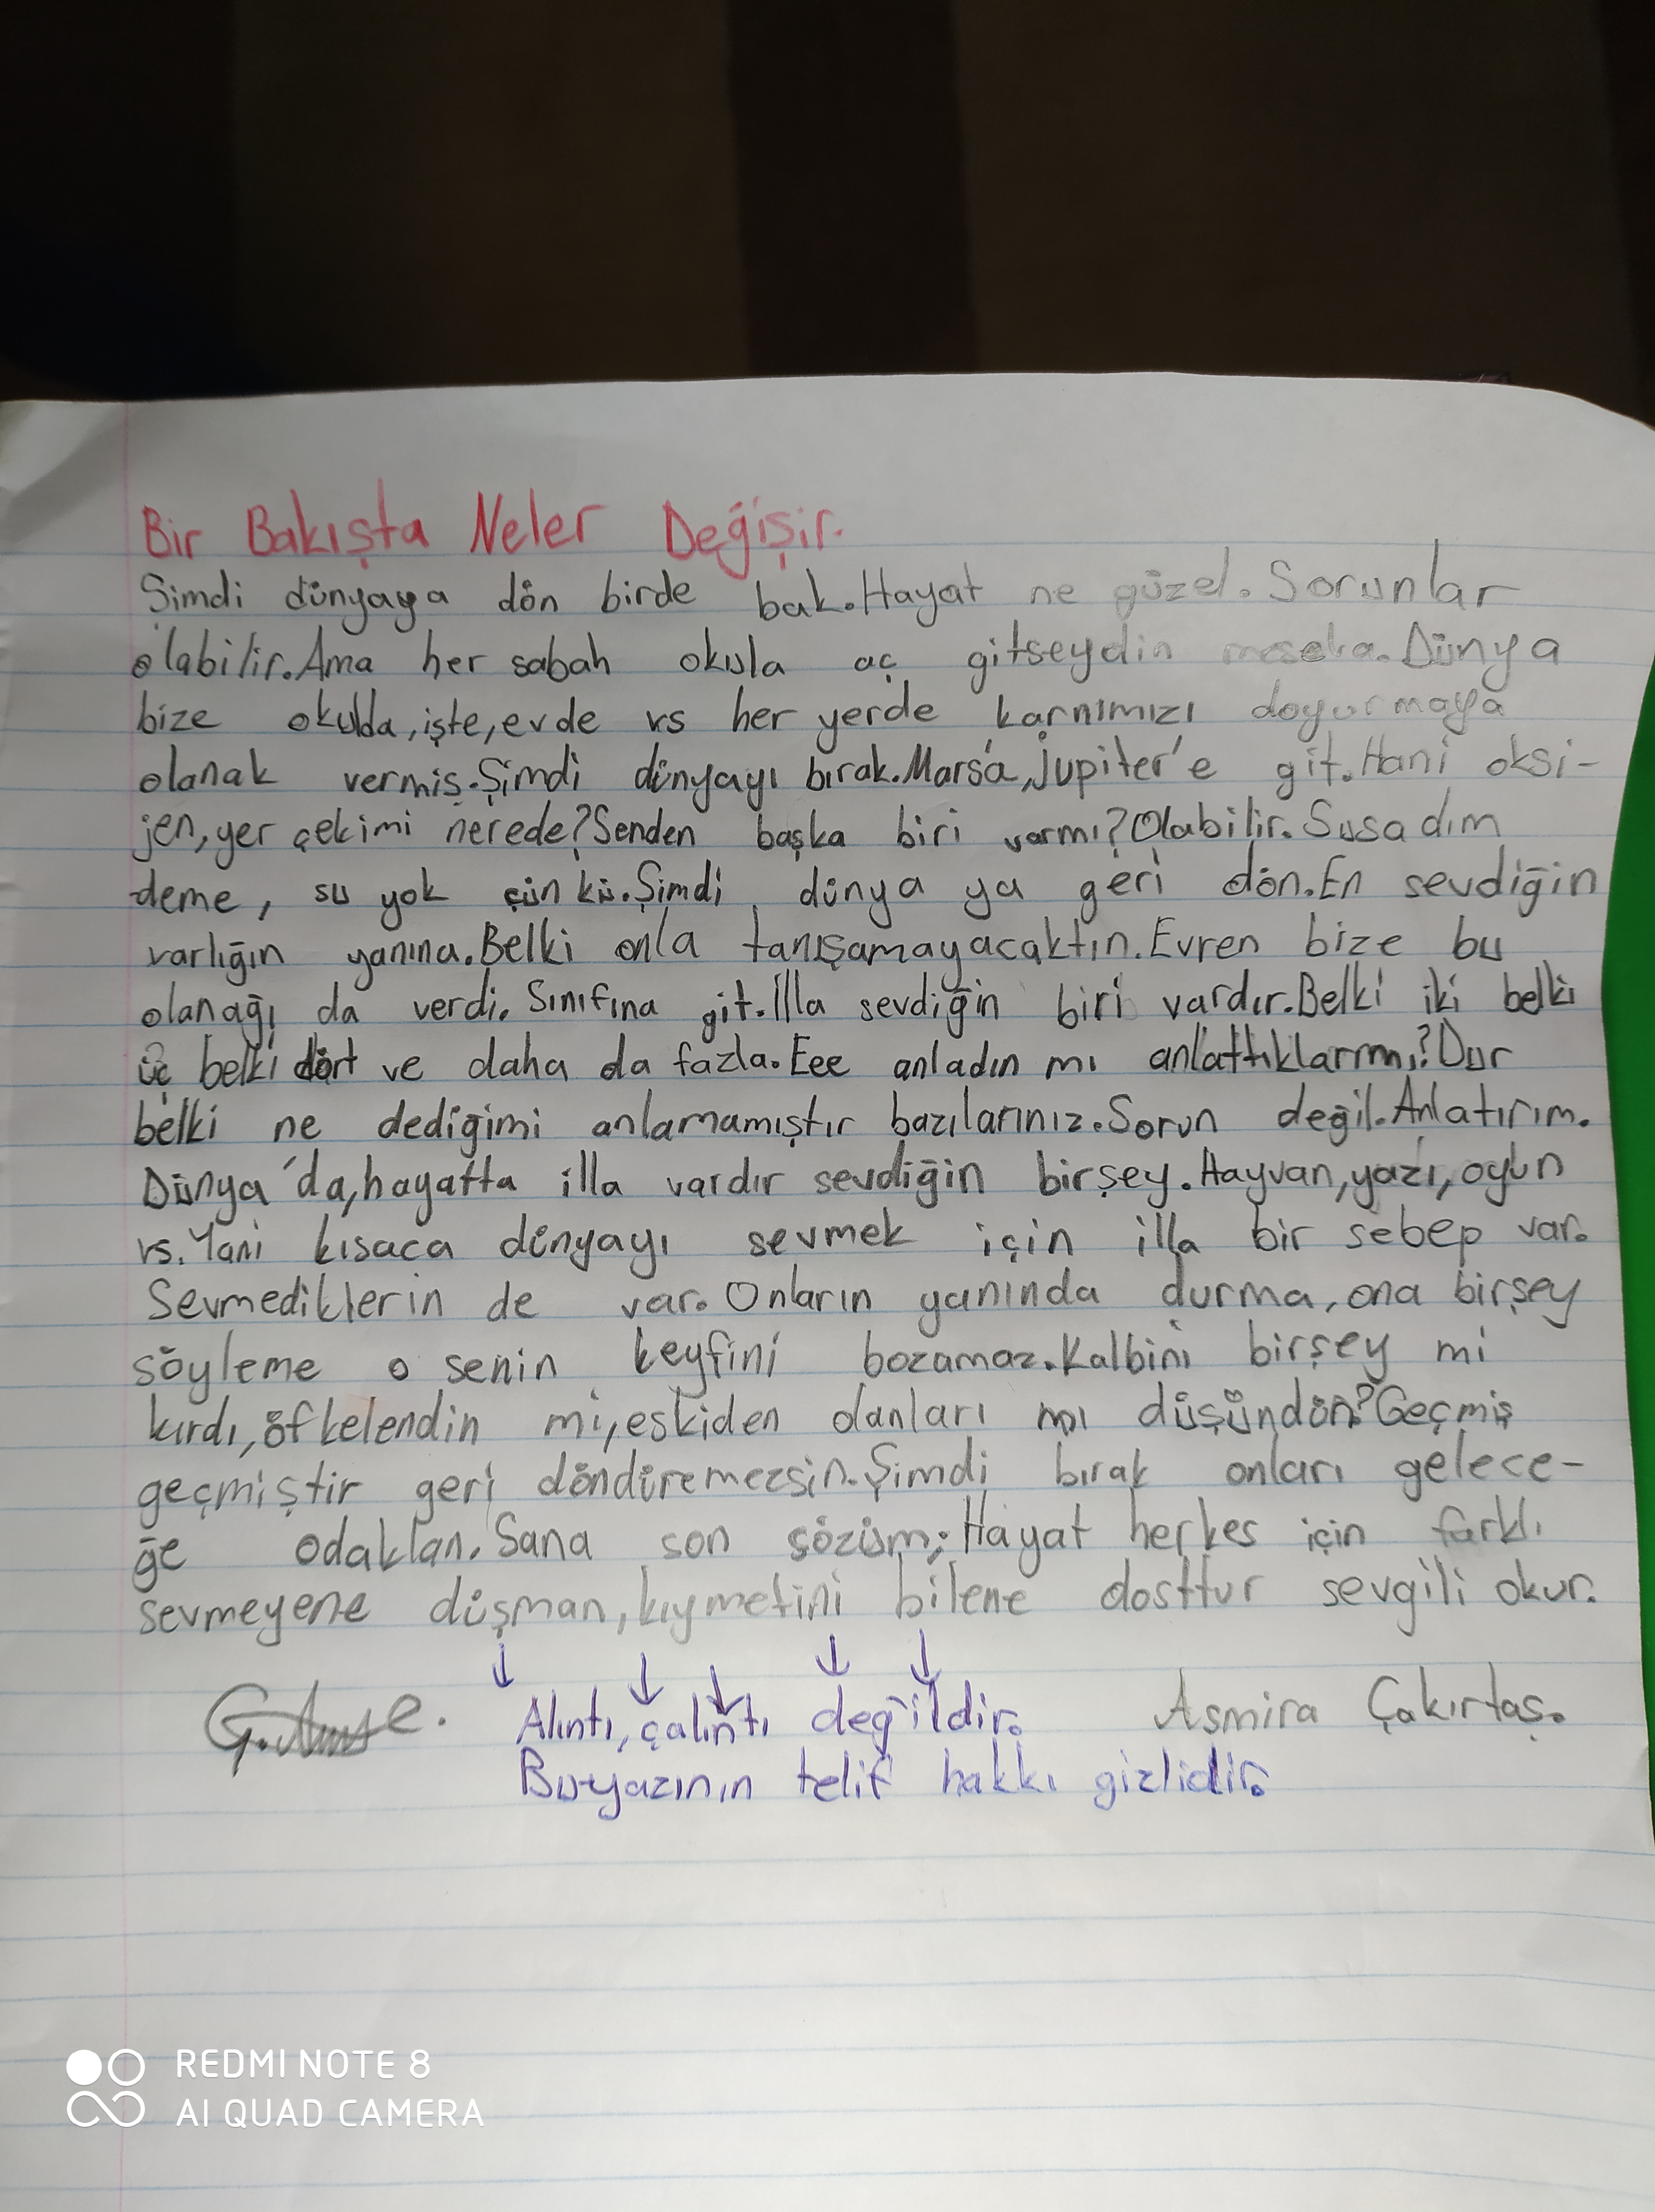 Bir Bakışta Neler Değişir.
Şimdi dünyaya dön birde bak.Hayat ne güzel.Sorunlar
olabilir.Ama her sabah okula aç gitseydin mesela.Dünya
bize okulda,işte,evde vs her yerde karnımızı doyurmaya
olanak vermiş.Şimdi dünyayı bırak.Mars'a,Jupiter'e git.Hani oksi-
jen,yer çekimi nerede?Senden başka biri varmı?Olabilir.Susadım
deme, su yok çünkü.Şimdi dünya ya geri dön.En sevdiğin
varlığın yanına.Belki onla tanışamayacaktın.Evren bize bu
olanağı da verdi. Sınıfına git.İlla sevdiğin biri vardır.Belki iki belki
üç belki dört ve daha da fazla.Eee anladın mı anlattıklarımı?Dur
belki ne dediğimi anlamamıştır bazılarınız.Sorun değil.Anlatırım.
Dünya'da,hayatta illa vardır sevdiğin birşey.Hayvan,yazı,oyun
vs.Yani kısaca dünyayı sevmek için illa bir sebep var.
Sevmediklerin de var.Onların yanında durma,ona birşey
söyleme o senin keyfini bozamaz.Kalbini birşey mi
kırdı,öfkelendin mi,eskiden olanları mı düşündün?Geçmiş
geçmiştir geri döndüremezsin.Şimdi bırak onları gelece-
ğe odaklan.Sana son sözüm;Hayat herkes için farklı
sevmeyene düşman,kıymetini bilene dosttur sevgili okur.
↓ ↓ ↓ ↓ ↓
Alıntı,çalıntı değildir. Asmira Çakırtaş.
Bu yazının telif hakkı gizlidir.
REDMI NOTE 8
AI QUAD CAMERA